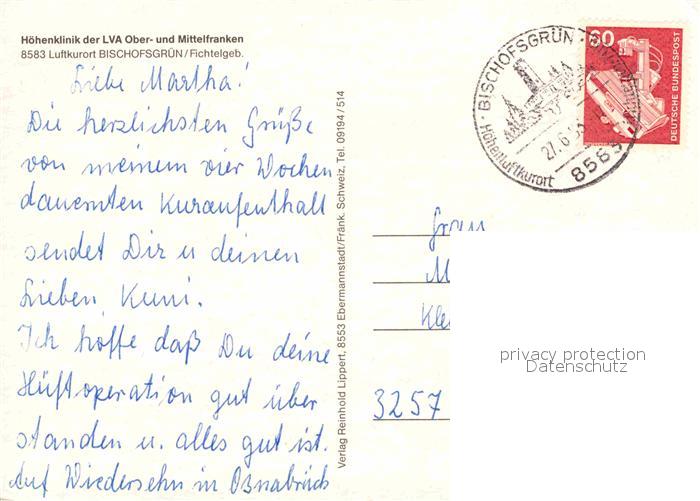 Höhenklinik der LVA Ober- und Mittelfranken
8583 Luftkurort BISCHOFSGRÜN/Fichtelgeb.
Liebe Martha!
Die herzlichsten Grüße
von meinem vier Wochen
dauernten Kuraufenthalt
sendet Dir u deinen
Lieben, Kuni.
Ich hoffe daß Du deine
Hüftoperation gut über
standen u. alles gut ist.
Auf Wiedersehn in Osnabrück
Verlag Reinhold Lippert, 8553 Ebermannstadt/Fränk. Schweiz, Tel. 09194/514
BISCHOFSGRÜN
Höhenluftkurort
27.6
8583
60
DEUTSCHE BUNDESPOST
Frau
M
Kle
3257
privacy protection
Datenschutz